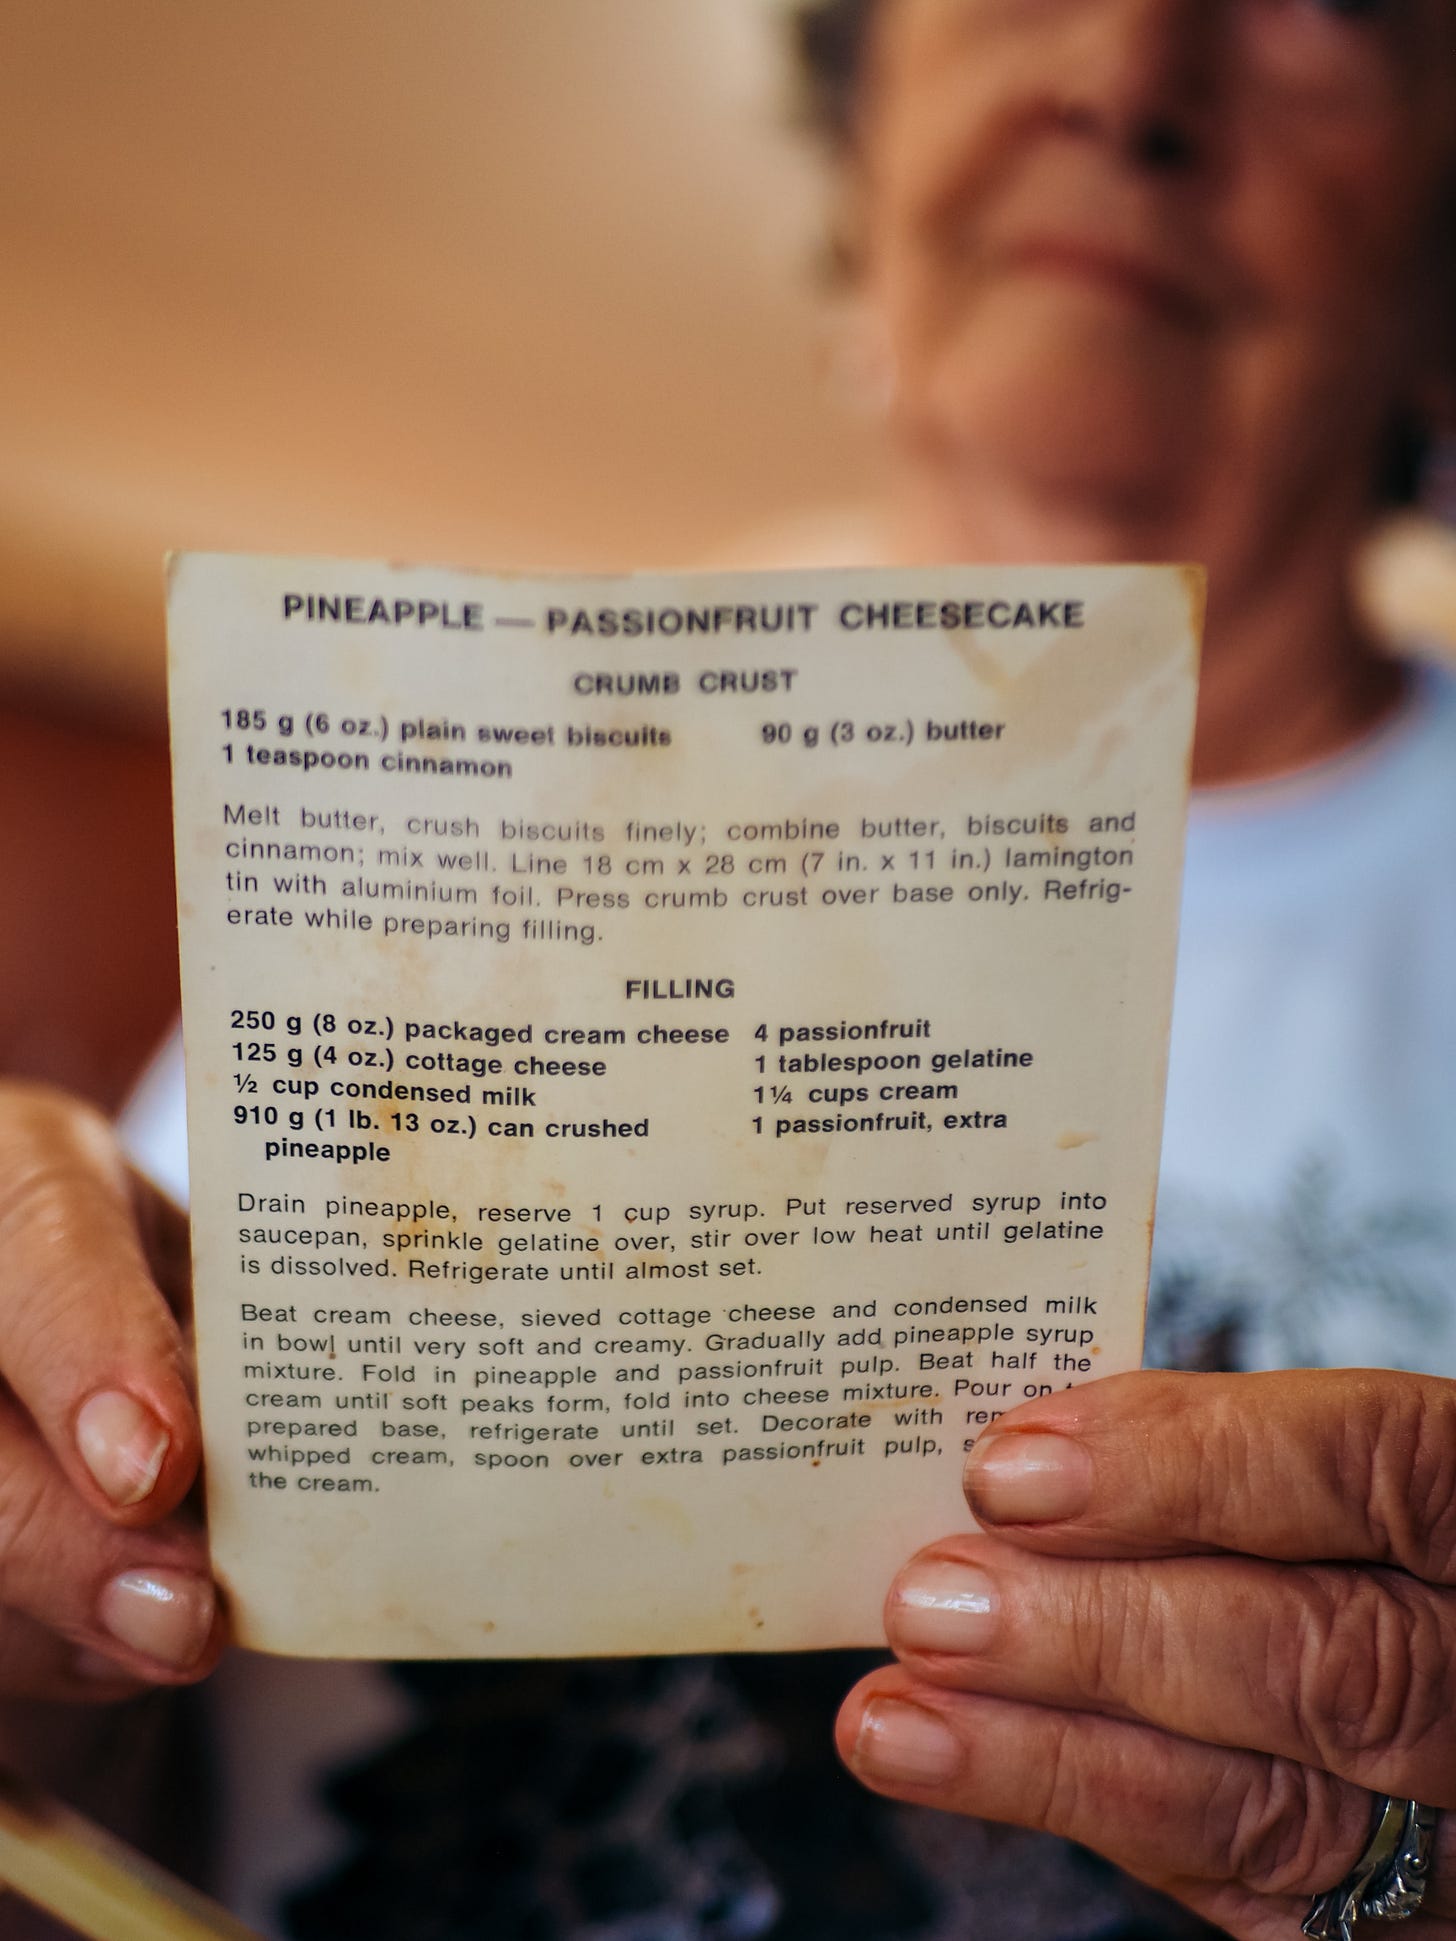 PINEAPPLE — PASSIONFRUIT CHEESECAKE
CRUMB CRUST
185 g (6 oz.) plain sweet biscuits 90 g (3 oz.) butter
1 teaspoon cinnamon
Melt butter, crush biscuits finely; combine butter, biscuits and
cinnamon; mix well. Line 18 cm x 28 cm (7 in. x 11 in.) lamington
tin with aluminium foil. Press crumb crust over base only. Refrig-
erate while preparing filling.
FILLING
250 g (8 oz.) packaged cream cheese 4 passionfruit
125 g (4 oz.) cottage cheese 1 tablespoon gelatine
½ cup condensed milk 1¼ cups cream
910 g (1 lb. 13 oz.) can crushed 1 passionfruit, extra
pineapple
Drain pineapple, reserve 1 cup syrup. Put reserved syrup into
saucepan, sprinkle gelatine over, stir over low heat until gelatine
is dissolved. Refrigerate until almost set.
Beat cream cheese, sieved cottage cheese and condensed milk
in bowl until very soft and creamy. Gradually add pineapple syrup
mixture. Fold in pineapple and passionfruit pulp. Beat half the
cream until soft peaks form, fold into cheese mixture. Pour on
prepared base, refrigerate until set. Decorate with
whipped cream, spoon over extra passionfruit pulp,
the cream.